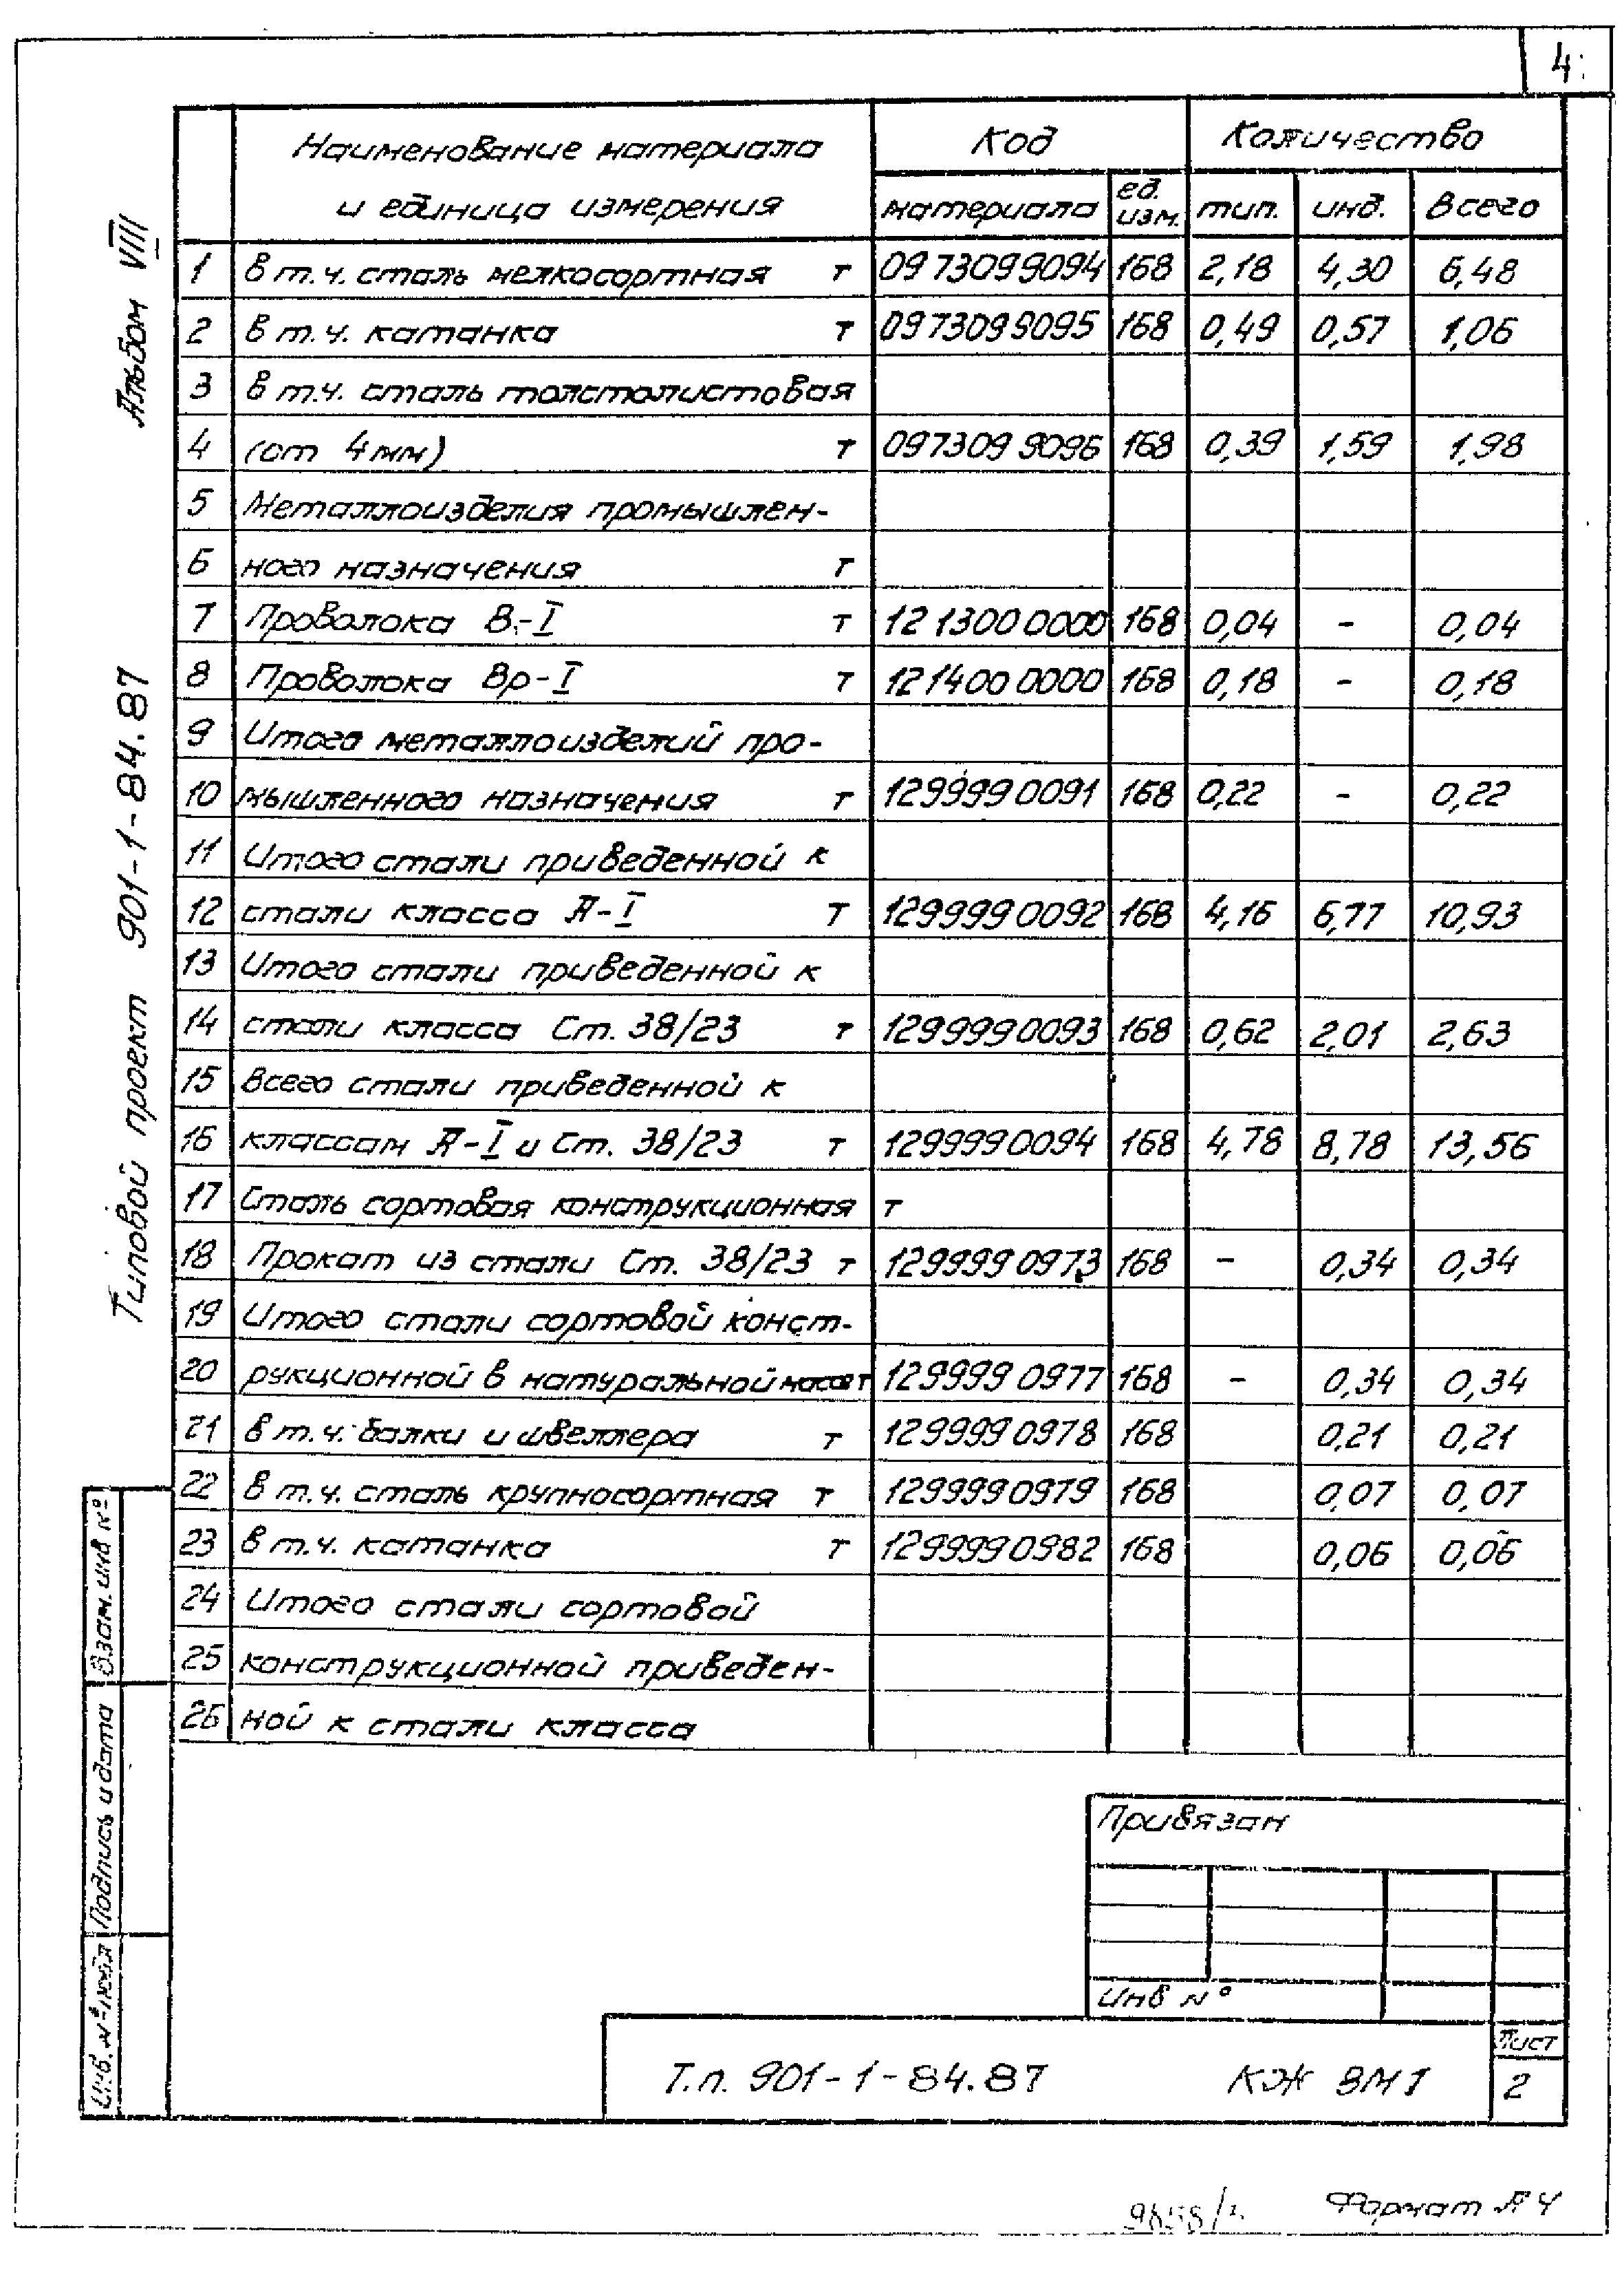 4
Альбом VIII
Типовой проект 901-1-84.87
Наименование материала и единица измерения Код Количество
материала ед. изм. тип. инд. Всего
1 в т.ч. сталь мелкосортная т 0973099094 168 2,18 4,30 6,48
2 в т.ч. катанка т 0973099095 168 0,49 0,57 1,06
3 в т.ч. сталь толстолистовая
4 (от 4мм) т 0973099096 168 0,39 1,59 1,98
5 Металлоизделия промышлен-
6 ного назначения т
7 Проволока В-I т 1213000000 168 0,04 - 0,04
8 Проволока Вр-I т 1214000000 168 0,18 - 0,18
9 Итого металлоизделий про-
10 мышленного назначения т 1299990091 168 0,22 - 0,22
11 Итого стали приведенной к
12 стали класса А-I т 1299990092 168 4,16 6,77 10,93
13 Итого стали приведенной к
14 стали класса Ст. 38/23 т 1299990093 168 0,62 2,01 2,63
15 Всего стали приведенной к
16 классам А-I и Ст. 38/23 т 1299990094 168 4,78 8,78 13,56
17 Сталь сортовая конструкционная т
18 Прокат из стали Ст. 38/23 т 1299990973 168 - 0,34 0,34
19 Итого стали сортовой конст-
20 рукционной в натуральной массе т 1299990977 168 - 0,34 0,34
21 в т.ч. балки и швеллера т 1299990978 168 0,21 0,21
22 в т.ч. сталь крупносортная т 1299990979 168 0,07 0,07
23 в т.ч. катанка т 1299990982 168 0,06 0,06
24 Итого стали сортовой
25 конструкционной приведен-
26 ной к стали класса
Взам. инв №
Подпись и дата
Инв. № подл
Привязан
Инв №
Т.п. 901-1-84.87 КЖ ВМ1
Лист
2
Формат А4